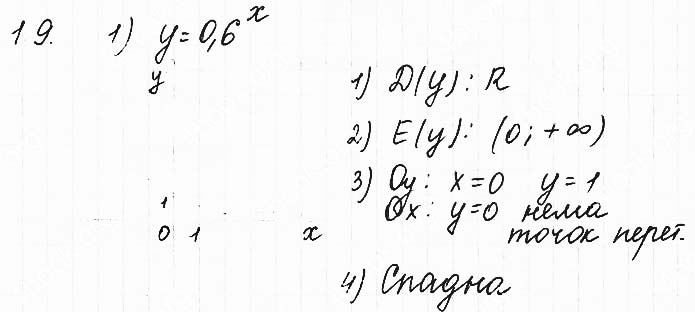 19. 1) y=0,6^x
y
1) D(y): R
2) E(y): (0; +∞)
3) Oy: x=0 y=1
Ox: y=0 нема
точок перет.
1
0 1 x
4) Спадна